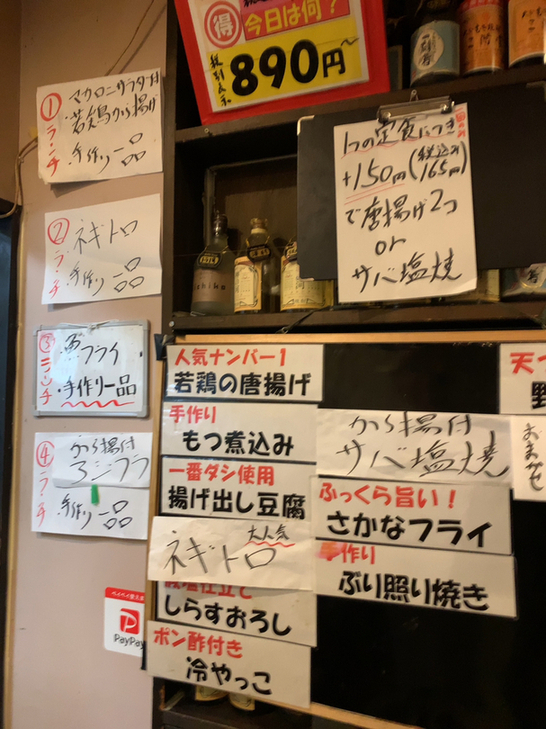 得 今日は何?
税別表示 890円~
① ランチ
マカロニサラダ付
若鶏から揚げ
手作り一品
② ランチ
ネギトロ
手作り一品
③ ランチ
魚フライ
・手作り一品
④ ランチ
から揚付
アジフラ
手作り一品
1つの定食につき
+150円(税込み165円)
で唐揚げ2コ
or
サバ塩焼
人気ナンバー1
若鶏の唐揚げ
手作り
もつ煮込み
一番ダシ使用
揚げ出し豆腐
大人気
ネギトロ
しらすおろし
ポン酢付き
冷やっこ
から揚付
サバ塩焼
ふっくら旨い!
さかなフライ
手作り
ぶり照り焼き
天つ
野
おまかせ
PayPay